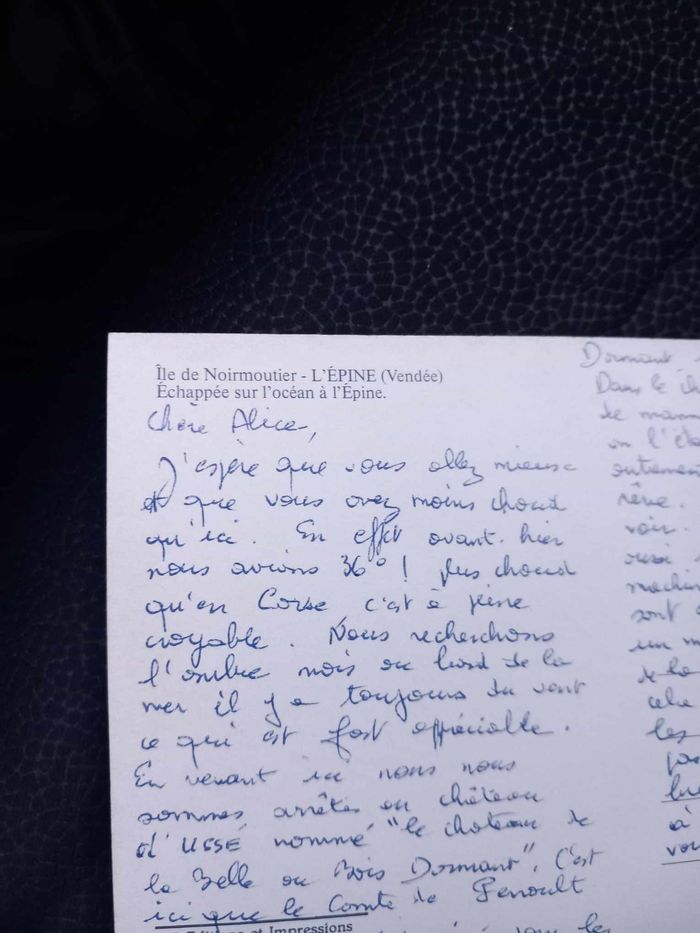 Île de Noirmoutier - L'ÉPINE (Vendée)
Échappée sur l'océan à l'Épine.
Chère Alice,
J'espère que vous allez mieux
et que vous avez moins chaud
qu'ici. En effet avant-hier
nous avions 36° ! plus chaud
qu'en Corse c'est à peine
croyable. Nous recherchons
l'ombre mais au bord de la
mer il y a toujours du vent
ce qui est fort appréciable.
En venant ici nous nous
sommes arrêtés au château
d'USSÉ nommé "le chateau de
la Belle au Bois Dormant". C'est
ici que le Comte de Perrault
Editions et Impressions
Dormant
Dans le
de
on l'
entièrement
rêve.
voir.
aussi
sont
un m
de la
celu
les
à
vou